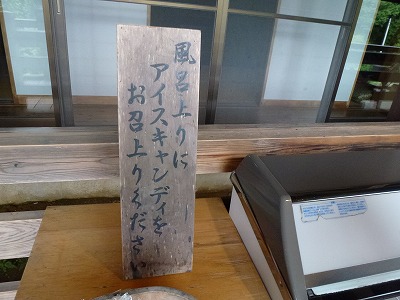 風呂上りに
アイスキャンディを
お召上りください